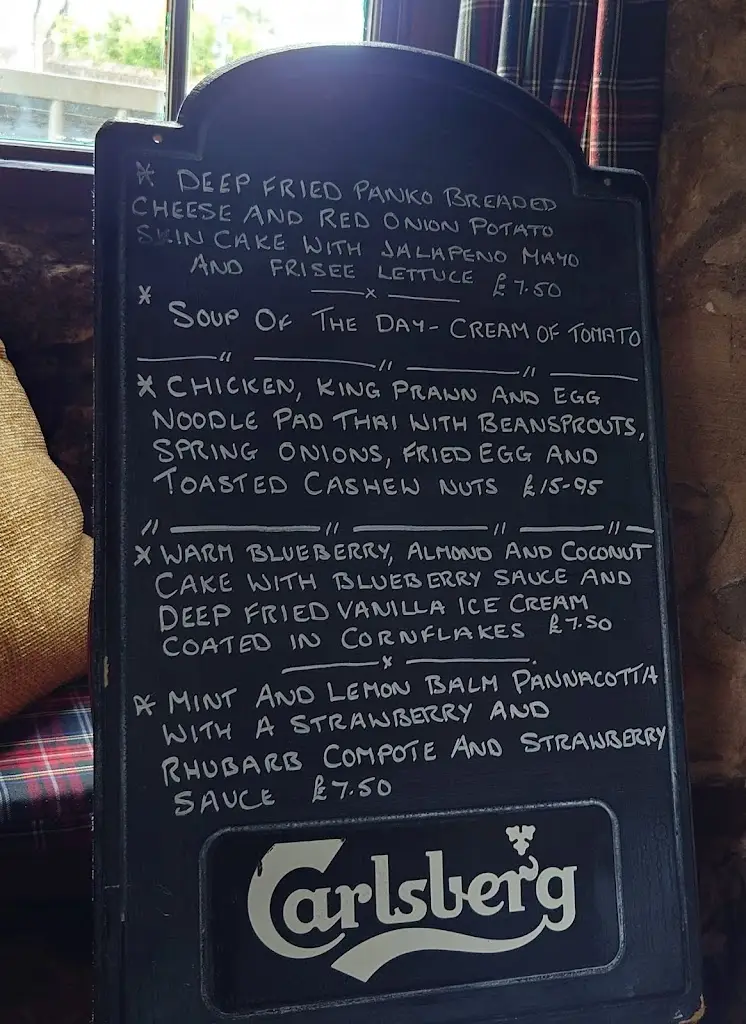 * DEEP FRIED PANKO BREADED
CHEESE AND RED ONION POTATO
SKIN CAKE WITH JALAPENO MAYO
AND FRISEE LETTUCE £7.50
* SOUP OF THE DAY - CREAM OF TOMATO
* CHICKEN, KING PRAWN AND EGG
NOODLE PAD THAI WITH BEANSPROUTS,
SPRING ONIONS, FRIED EGG AND
TOASTED CASHEW NUTS £15-95
* WARM BLUEBERRY, ALMOND AND COCONUT
CAKE WITH BLUEBERRY SAUCE AND
DEEP FRIED VANILLA ICE CREAM
COATED IN CORNFLAKES £7.50
* MINT AND LEMON BALM PANNACOTTA
WITH A STRAWBERRY AND
RHUBARB COMPOTE AND STRAWBERRY
SAUCE £7.50
Carlsberg